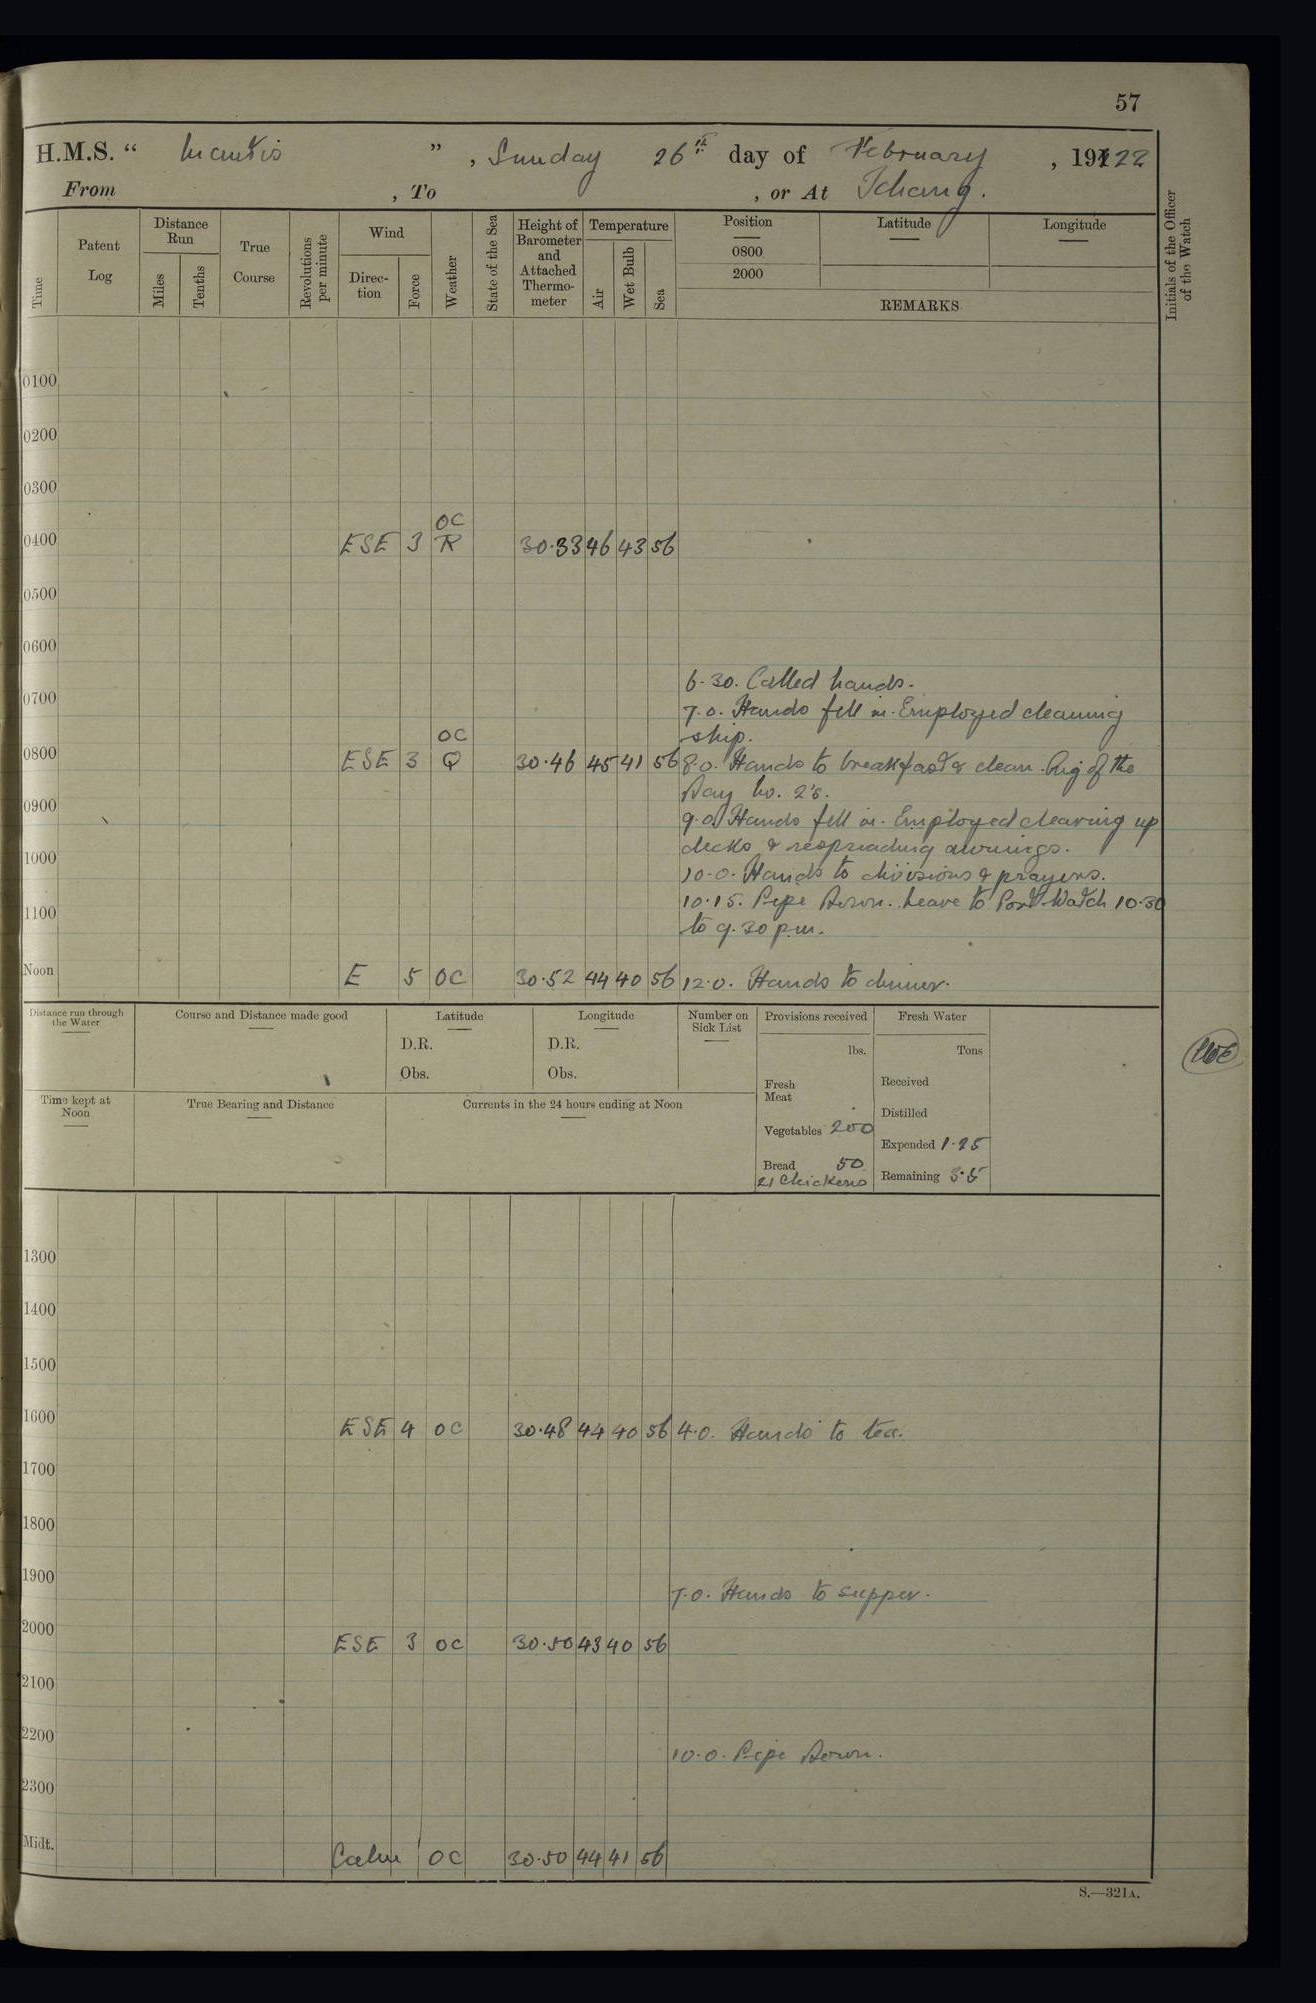 57
H.M.S. “ Mantis ” , Sunday 26th day of February , 1922
From , To , or At Ichang.
Time
Patent Log
Distance Run
Miles
Tenths
True Course
Revolutions per minute
Wind
Direction
Force
Weather
State of the Sea
Height of Barometer and Attached Thermometer
Temperature
Air
Wet Bulb
Sea
Position
0800
2000
Latitude
Longitude
REMARKS
Initials of the Officer of the Watch
0100
0200
0300
OC
0400 ESE 3 R 30.33 46 43 56
0500
0600
6.30. Called hands.
0700
7.0. Hands fell in. Employed cleaning
ship.
OC
0800 ESE 3 Q 30.46 45 41 56 8.0. Hands to breakfast & clean. Rig of the
Day No. 2's.
0900
9.0. Hands fell in. Employed clearing up
decks & respreading awnings.
1000
10.0. Hands to divisions & prayers.
10.15. Pipe Down. Leave to Port Watch 10.30
1100
to 9.30 p.m.
Noon E 5 OC 30.52 44 40 56 12.0. Hands to dinner.
Distance run through the Water
Course and Distance made good
Latitude
D.R.
Obs.
Longitude
D.R.
Obs.
Number on Sick List
Provisions received
lbs.
Fresh Meat
Vegetables 200
Bread 50
21 Chickens
Fresh Water
Tons
Received
Distilled
Expended 1.25
Remaining 3.5
Time kept at Noon
True Bearing and Distance
Currents in the 24 hours ending at Noon
1300
1400
1500
1600 ESE 4 OC 30.48 44 40 56 4.0. Hands to tea.
1700
1800
1900
7.0. Hands to supper.
2000 ESE 3 OC 30.50 43 40 56
2100
2200
10.0. Pipe Down.
2300
Midt. Calm OC 30.50 44 41 56
S.—321A.